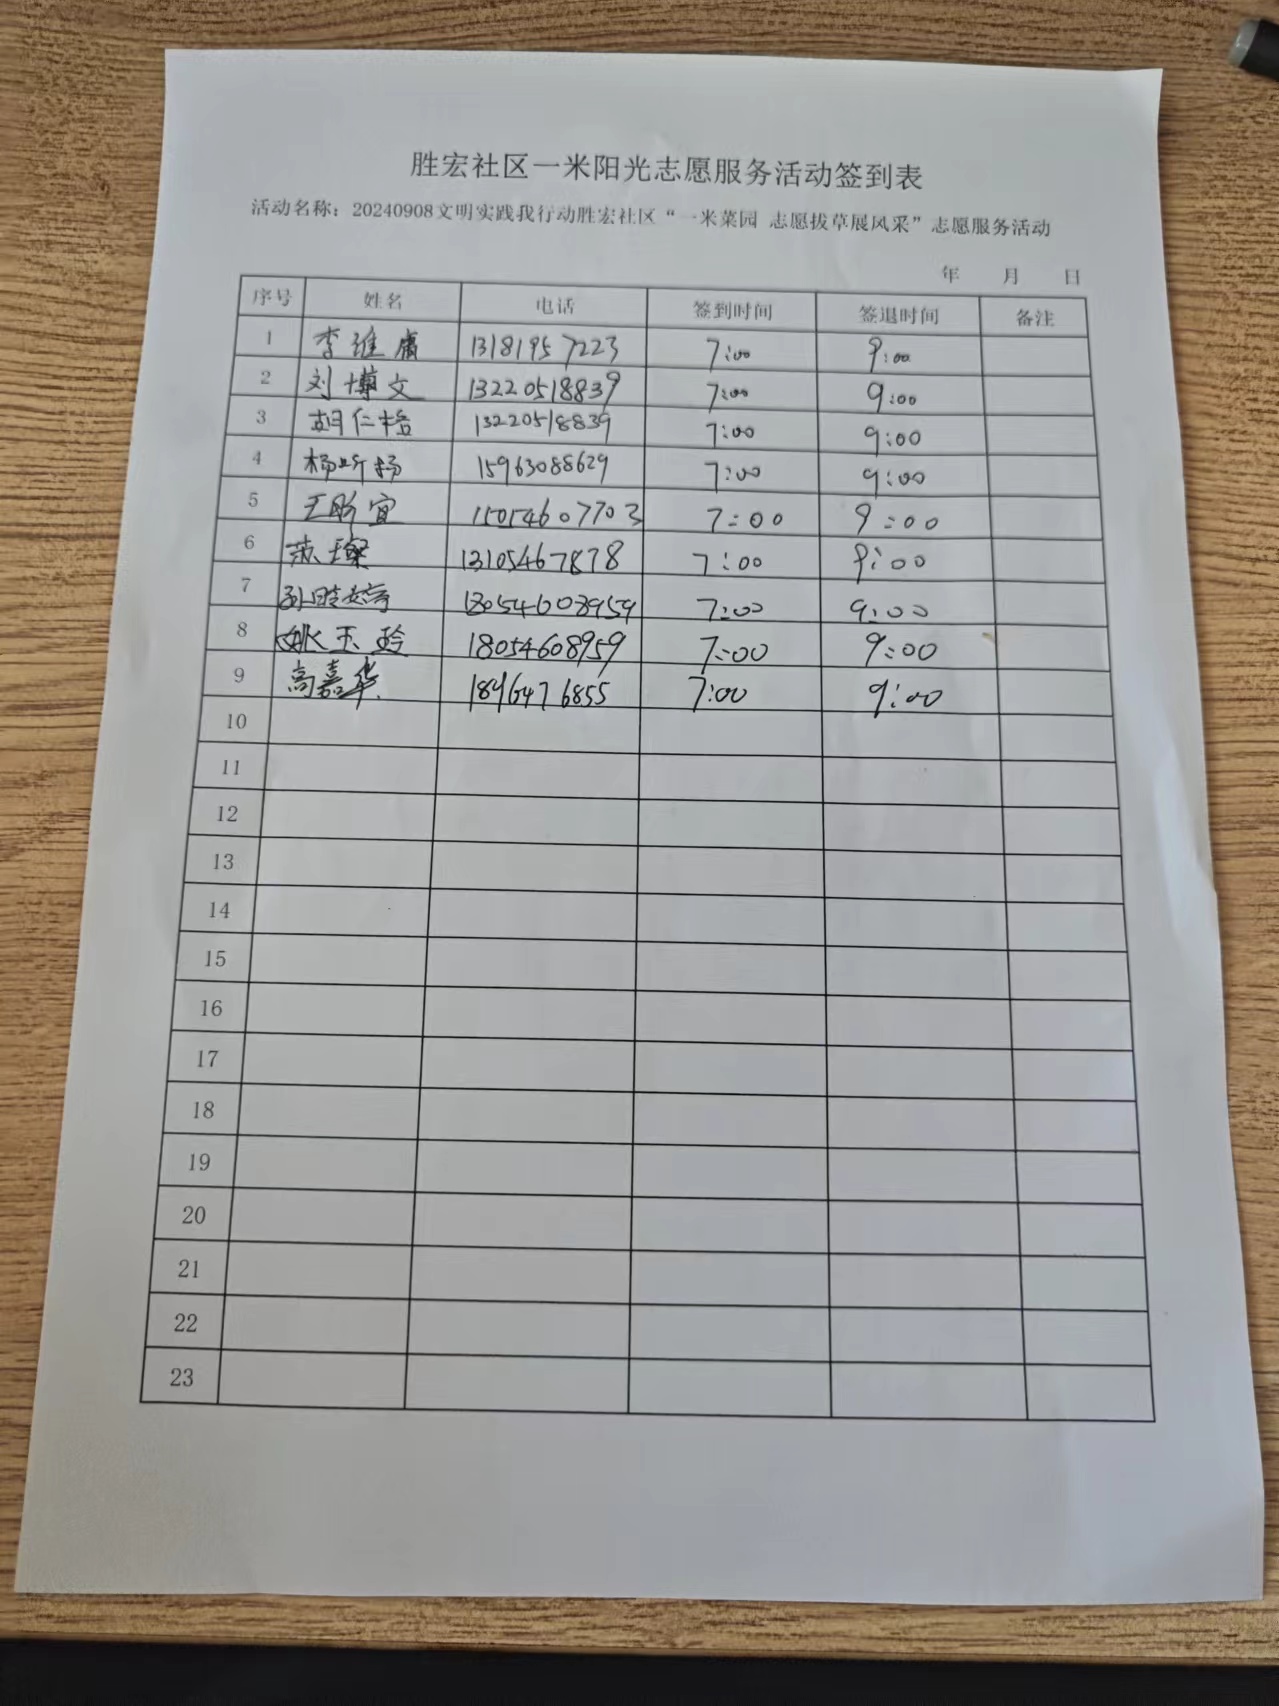 胜宏社区一米阳光志愿服务活动签到表
活动名称：20240908文明实践我行动胜宏社区“一米菜园 志愿拔草展风采”志愿服务活动
年 月 日
序号 姓名 电话 签到时间 签退时间 备注
1 李维庸 13181957223 7:00 9:00
2 刘博文 13220518839 7:00 9:00
3 胡仁格 13220518839 7:00 9:00
4 杨昕扬 15963088629 7:00 9:00
5 王昕宜 15054607703 7:00 9:00
6 范璨 13105467878 7:00 9:00
7 孙晧婷 18054608959 7:00 9:00
8 姚玉玲 18054608959 7:00 9:00
9 高嘉华 18964776855 7:00 9:00
10
11
12
13
14
15
16
17
18
19
20
21
22
23